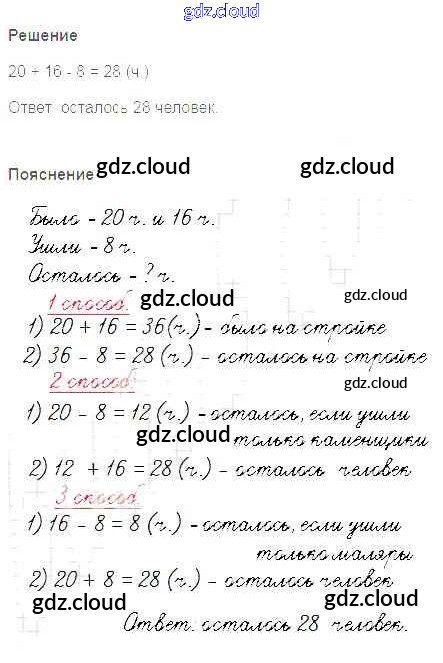 gdz.cloud
Решение
20 + 16 - 8 = 28 (ч.)
Ответ: осталось 28 человек.
gdz.cloud
gdz.cloud
Пояснение
Было - 20 ч. и 16 ч.
Ушли - 8 ч.
Осталось - ? ч.
1 способ. gdz.cloud gdz.cloud
1) 20 + 16 = 36 (ч.) - было на стройке
2) 36 - 8 = 28 (ч.) - осталось на стройке
2 способ. gdz.cloud
1) 20 - 8 = 12 (ч.) - осталось, если ушли
gdz.cloud только каменщики
2) 12 + 16 = 28 (ч.) - осталось человек
3 способ. gdz.cloud
1) 16 - 8 = 8 (ч.) - осталось, если ушли
только маляры
2) 20 + 8 = 28 (ч.) - осталось человек
gdz.cloud gdz.cloud
Ответ: осталось 28 человек.
gdz.cloud